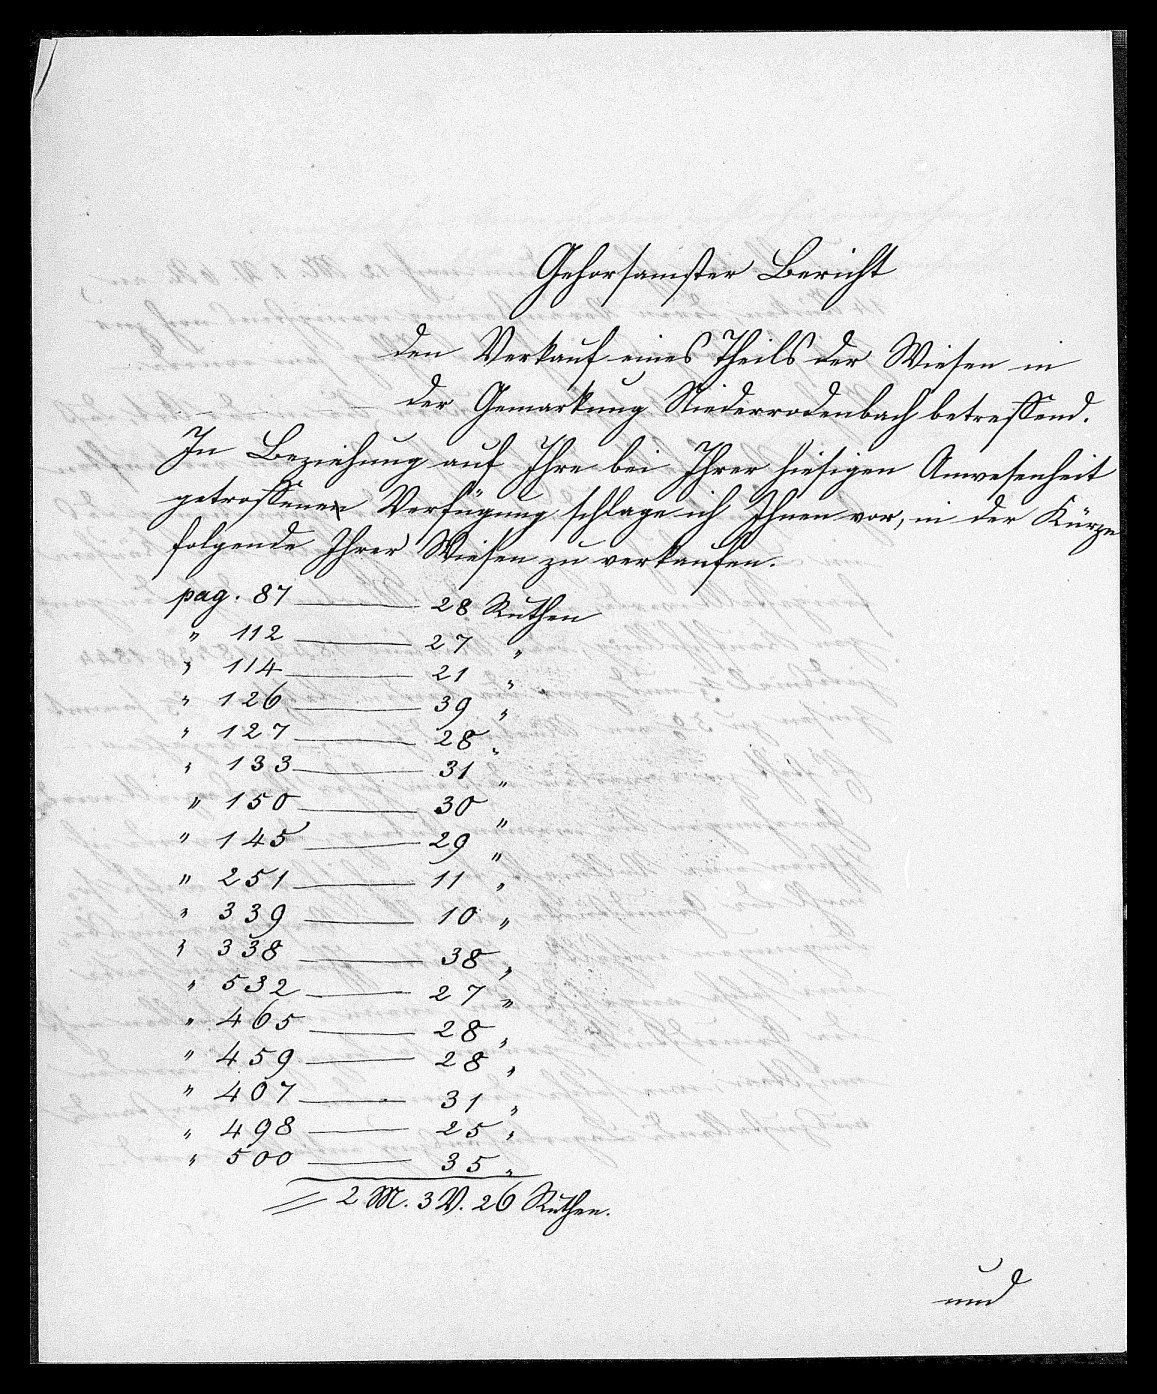 Gehorsamster Bericht
den Verkauf eines Theils der Wiesen in
der Gemarkung Niederrodenbach betreffend.
In Beziehung auf Ihre bei Ihrer hiesigen Anwesenheit
getroffenen Verfügung schlage ich Ihnen vor, in der Kürze
folgende Ihrer Wiesen zu verkaufen.
pag. 87 — 28 Ruthen
" 112 — 27 "
" 114 — 21 "
" 126 — 39 "
" 127 — 28 "
" 133 — 31 "
" 150 — 30 "
" 145 — 29 "
" 251 — 11 "
" 339 — 10 "
" 338 — 38 "
" 532 — 27 "
" 465 — 28 "
" 459 — 28 "
" 407 — 31 "
" 498 — 25 "
" 500 — 35 "
= 2 M. 3 V. 26 Ruthen.
und